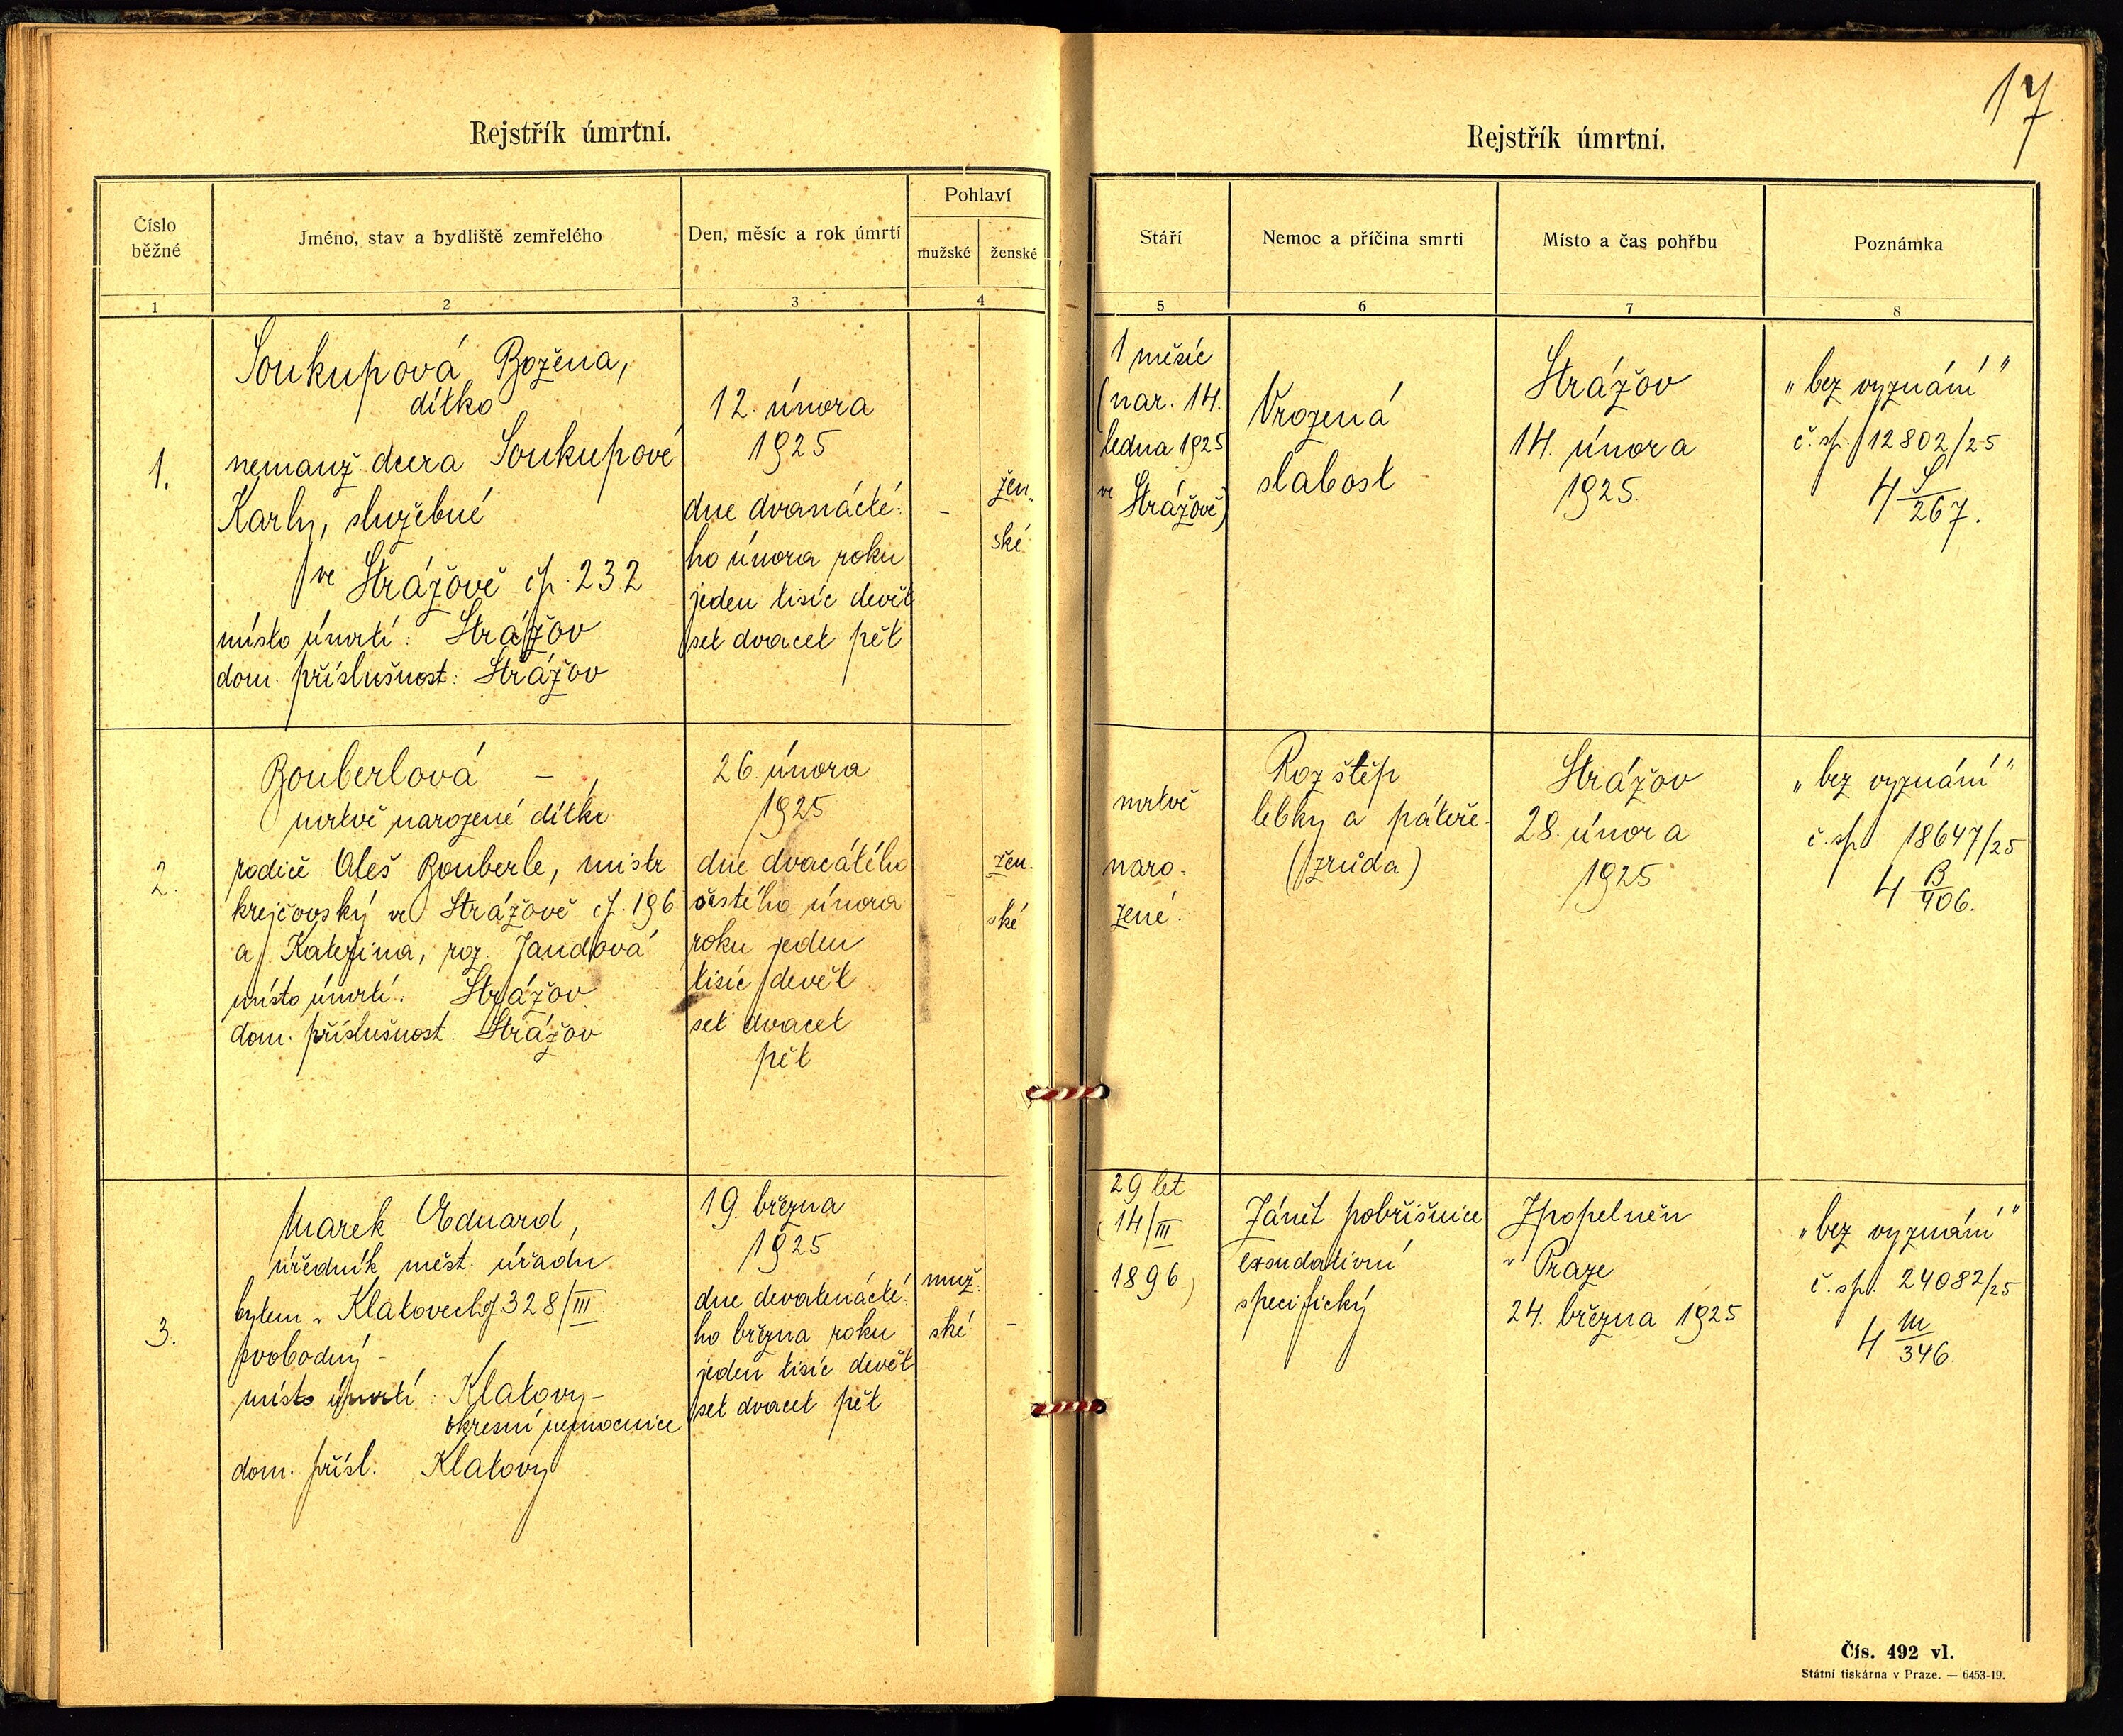 17
Rejstřík úmrtní.
Číslo běžné
Jméno, stav a bydliště zemřelého
Den, měsíc a rok úmrtí
Pohlaví
mužské
ženské
1
2
3
4
1.
Soukupová Božena,
dítko
nemanž. dcera Soukupové
Karly, služebné
ve Strážově čp. 232
místo úmrtí: Strážov
dom. příslušnost: Strážov
12. února
1925
dne dvanácté-
ho února roku
jeden tisíc devět
set dvacet pět
-
žen-
ské
2.
Bouberlová - ,
mrtvě narozené dítko
rodiče: Aleš Bouberle, mistr
krejčovský ve Strážově čp. 196
a Kateřina, roz. Jandová
místo úmrtí: Strážov
dom. příslušnost: Strážov
26. února
1925
dne dvacátého
šestého února
roku jeden
tisíc devět
set dvacet
pět
-
žen-
ské
3.
Marek Eduard,
úředník měst. úřadu
bytem v Klatovech čp. 328/III.
svobodný -
místo úmrtí: Klatovy -
okresní nemocnice
dom. přísl. Klatovy
19. března
1925
dne devatenácté-
ho března roku
jeden tisíc devět
set dvacet pět
muž-
ské
-
Rejstřík úmrtní.
Stáří
Nemoc a příčina smrti
Místo a čas pohřbu
Poznámka
5
6
7
8
1 měsíc
(nar. 14.
ledna 1925
ve Strážově)
Vrozená
slabost
Strážov
14. února
1925.
"bez vyznání"
č. sp. 12802/25
4 S/267.
mrtvě
naro-
zené.
Rozštěp
lebky a páteře
(zrůda)
Strážov
28. února
1925
"bez vyznání"
č. sp. 18647/25
4 B/406.
29 let
(14/III
1896)
Zánět pobřišnice
exsudativní
specifický
Zpopelněn
v Praze
24. března 1925
"bez vyznání"
č. sp. 24082/25
4 M/346.
Čís. 492 vl.
Státní tiskárna v Praze. — 6453-19.